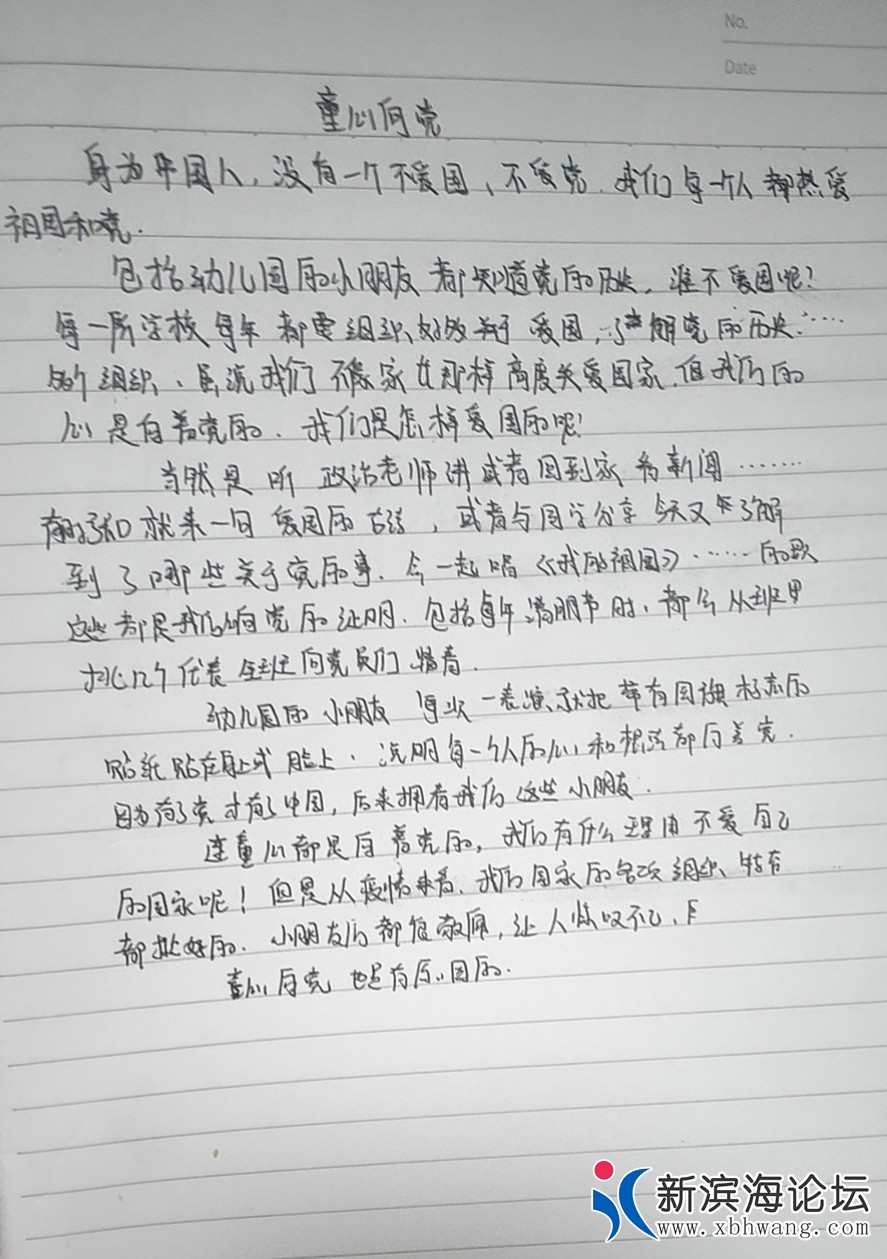 No.
Date
童心向党
身为中国人,没有一个不爱国、不爱党.我们每一个人都热爱
祖国和党.
包括幼儿园的小朋友都知道党的历史,谁不爱国呢?
每一所学校每年都要组织好多关于爱国,了解党的历史……
的组织、虽说我们不像家长那样高度关爱国家.但我们的
心是向着党的.我们是怎样爱国的呢?
当然是听政治老师讲或者回到家看新闻……
就来一句爱国的古诗,或者与同学分享今天又了解
到了哪些关于党的事.会一起唱《我的祖国》……的歌
这些都是我们向党的证明.包括每年清明节时.都会从班里
挑几个代表全班向党员们
幼儿园的小朋友每次一表演就把带有国旗标志的
贴纸贴在身上或脸上.说明每一个人的心和想法都向着党.
因为有了党才有了中国,后来拥有我们这些小朋友.
连童心都是向着党的,我们有什么理由不爱自己
的国家呢!但是从疫情来看.我们国家的各项组织、
都挺好的.小朋友们都很敬佩,让人惊叹不已,
童心向党也是有原因的.
新滨海论坛
www.xbhwang.com